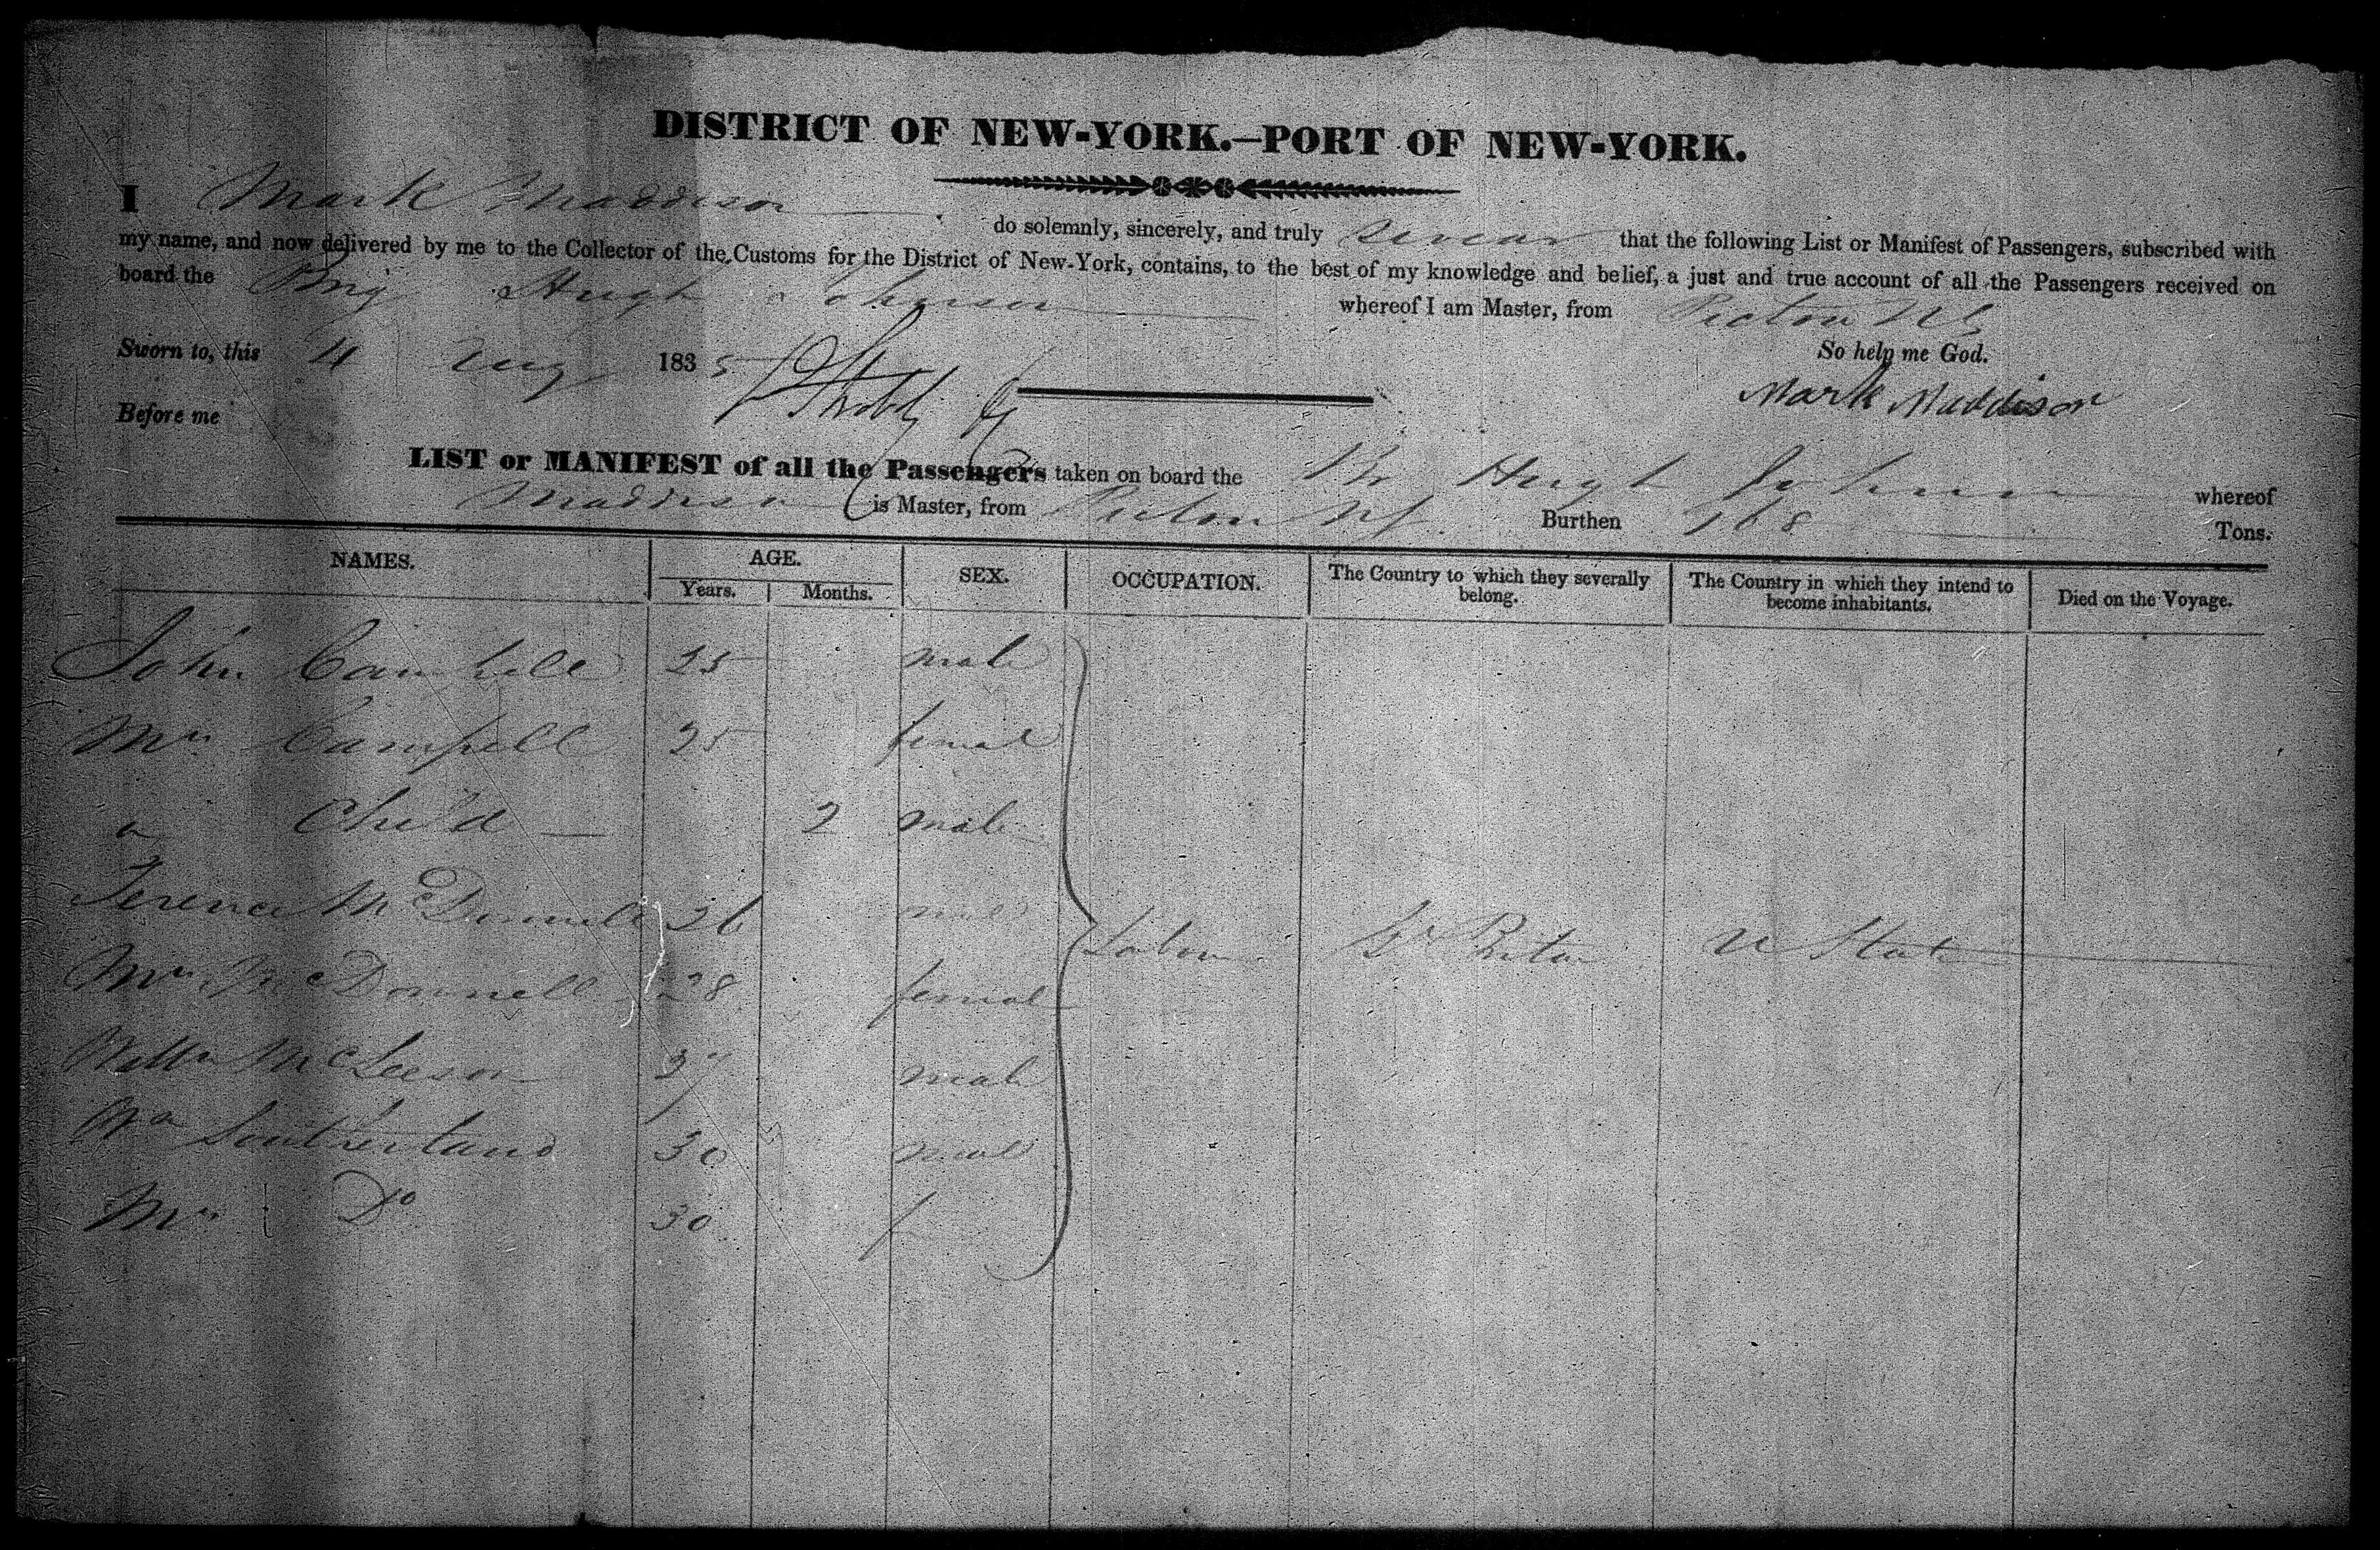 DISTRICT OF NEW-YORK.—PORT OF NEW-YORK.
I Mark Maddison do solemnly, sincerely, and truly swear that the following List or Manifest of Passengers, subscribed with
my name, and now delivered by me to the Collector of the Customs for the District of New-York, contains, to the best of my knowledge and belief, a just and true account of all the Passengers received on
board the Brig Hugh Johnson whereof I am Master, from Pictou NS
Sworn to, this 4 Aug 1835 So help me God.
Before me Mark Maddison
LIST or MANIFEST of all the Passengers taken on board the Hugh Johnson whereof
Maddison is Master, from Pictou NS Burthen 168 Tons.
NAMES. AGE. Years. Months. SEX. OCCUPATION. The Country to which they severally belong. The Country in which they intend to become inhabitants. Died on the Voyage.
John Campbell 25 male
Mrs Campell 25 femal
a Child — 2 male
Terence McDonnell 26 male
Labour Gt Britain U State
Mrs McDonnell 28 femal
McLeeson 37 male
Wm Southerland 30 male
Mrs Do 30 f